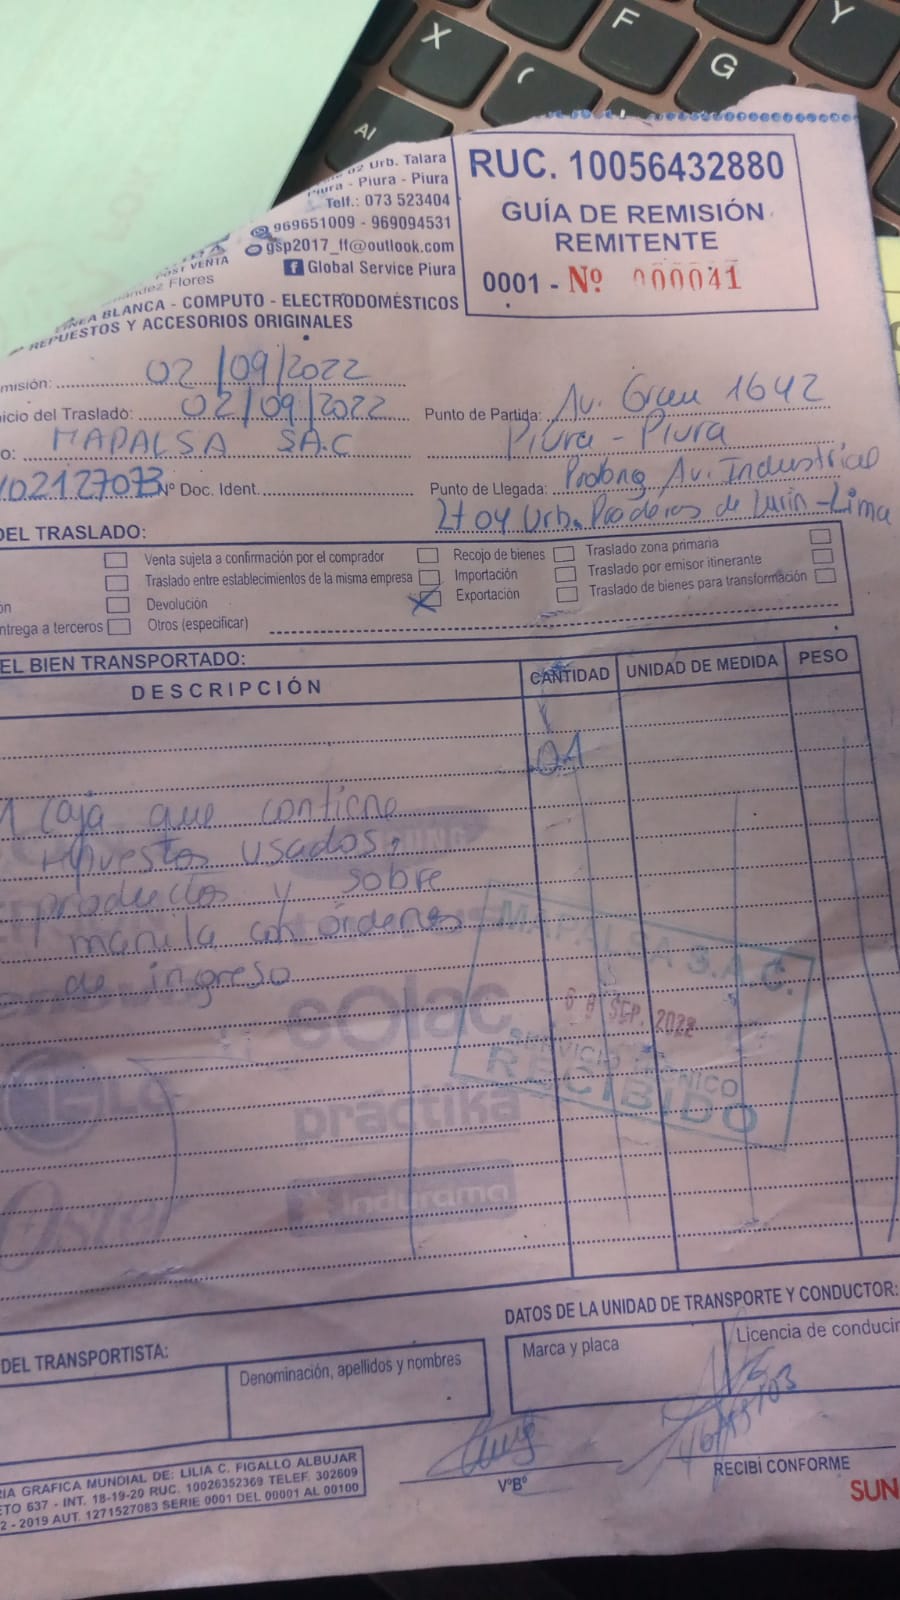 02 Urb. Talara
Piura - Piura - Piura
Telf.: 073 523404
969651009 - 969094531
gsp2017_ff@outlook.com
Global Service Piura
POST VENTA
Flores
LÍNEA BLANCA - COMPUTO - ELECTRODOMÉSTICOS
REPUESTOS Y ACCESORIOS ORIGINALES
RUC. 10056432880
GUÍA DE REMISIÓN
REMITENTE
0001 - Nº 000041
misión: 02/09/2022
nicio del Traslado: 02/09/2022
Punto de Partida: Av. Grau 1642
Piura - Piura
o: MAPALSA SAC
02127073 Nº Doc. Ident.
Punto de Llegada: Prolong Av. Industrial
Lt 04 Urb. Praderas de Lurín - Lima
DEL TRASLADO:
Venta sujeta a confirmación por el comprador
Recojo de bienes
Traslado zona primaria
Traslado entre establecimientos de la misma empresa
Importación
Traslado por emisor itinerante
ón
Devolución
Exportación
Traslado de bienes para transformación
ntrega a terceros
Otros (especificar)
EL BIEN TRANSPORTADO:
DESCRIPCIÓN
CANTIDAD
UNIDAD DE MEDIDA
PESO
01
1 caja que contiene
repuestos usados,
productos y sobre
manila con órdenes
de ingreso
SAMSUNG
solac
LG
práctika
Oster
Indurama
MAPALSA S.A.C.
08 SEP. 2022
SERVICIO TÉCNICO
RECIBIDO
DEL TRANSPORTISTA:
Denominación, apellidos y nombres
DATOS DE LA UNIDAD DE TRANSPORTE Y CONDUCTOR:
Marca y placa
Licencia de conducir
VºBº
RECIBÍ CONFORME
RIA GRAFICA MUNDIAL DE: LILIA C. FIGALLO ALBUJAR
ETO 637 - INT. 18-19-20 RUC. 10026352369 TELEF. 302609
2 - 2019 AUT. 1271527083 SERIE 0001 DEL 00001 AL 00100
SUN
X
F
G
Y
Al